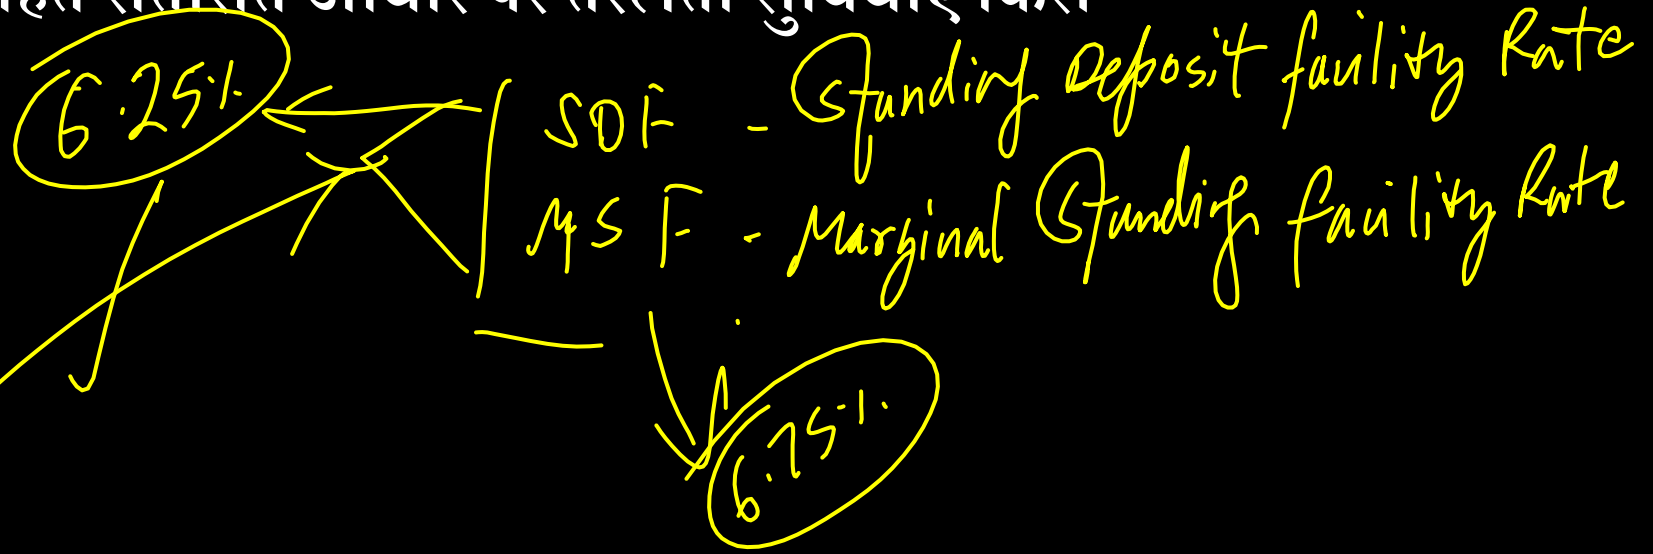 पर तरलता सुविधाएं किस
6.25%
SDF - Standing Deposit facility Rate
MSF - Marginal Standing facility Rate
6.75%